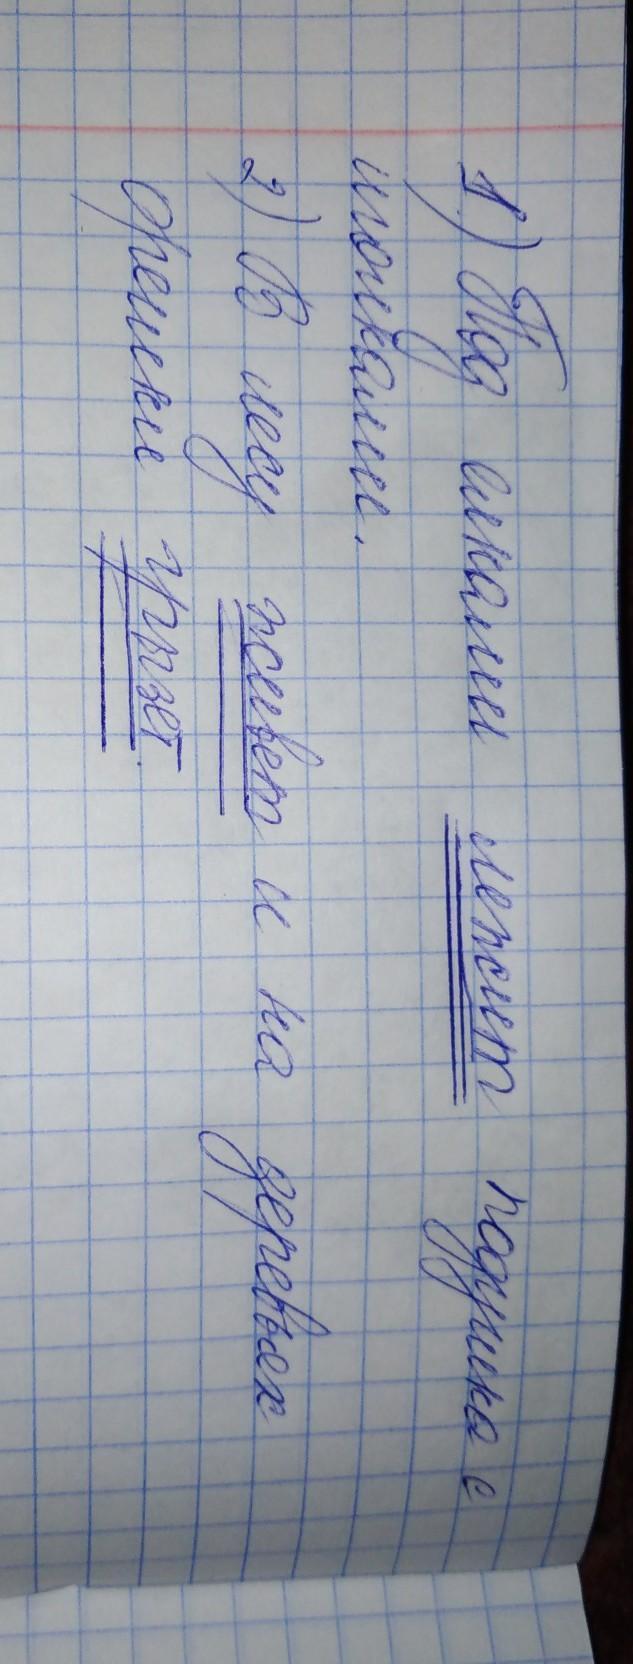 1) Под елками лежит подушка с
иголками.
2) В лесу живет и на деревьях
орешки грызет.